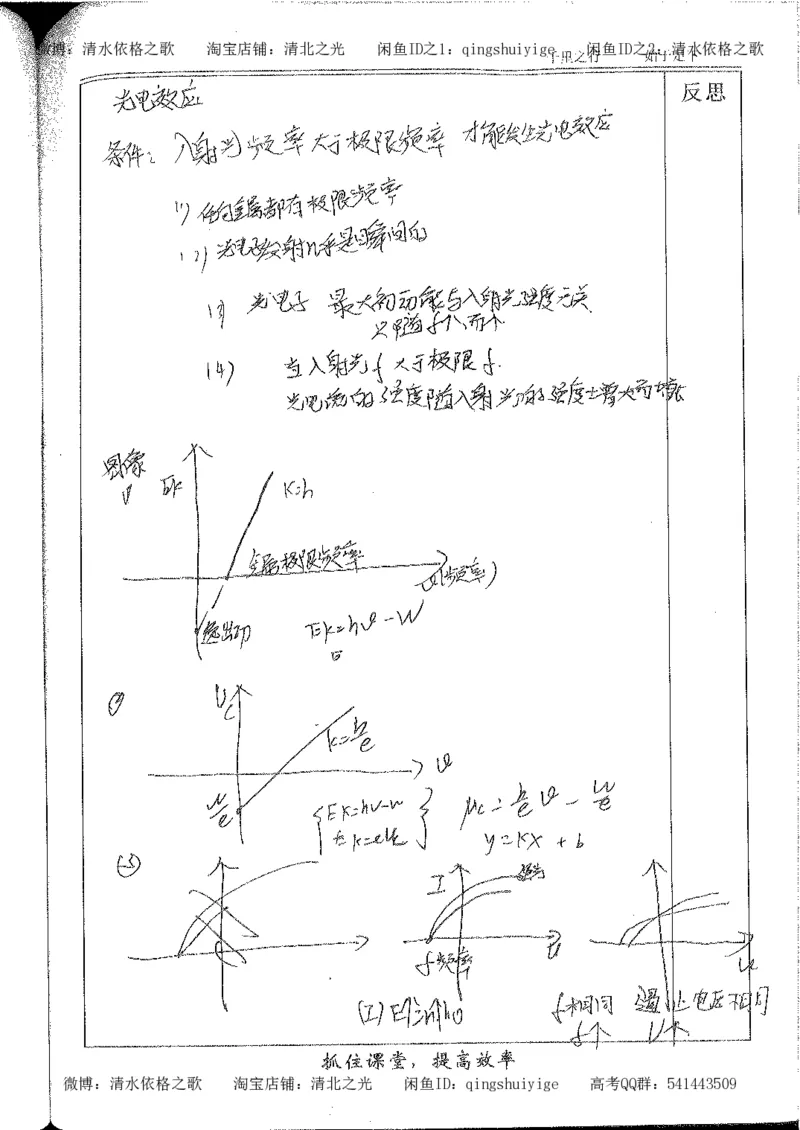 微博：清水依格之歌 淘宝店铺：清北之光 闲鱼ID之1：qingshuiyige 闲鱼ID之2：清水依格之歌
千里之行 始于足下
反思
光电效应
条件：入射光频率大于极限频率 才能发生光电效应
(1) 任何金属都有极限频率
(2) 光电发射几乎是瞬间的
(3) 光电子 最大初动能与入射光强度无关
只随f个而个
(4) 当入射光f大于极限f.
光电流的强度随入射光的强度增大而增大
图像
Ek
K=h
金属极限频率
υ(频率)
逸出功
Ek=hυ-W
Uc
K=h/e
υ
W/e
Ek=hυ-W
Ek=eUc
Uc=h/e υ - W/e
y=kx+b
(3)
I
U
f频率
f相同 遏止电压相同
f↑ U↑
抓住课堂，提高效率
微博：清水依格之歌 淘宝店铺：清北之光 闲鱼ID：qingshuiyige 高考QQ群：541443509